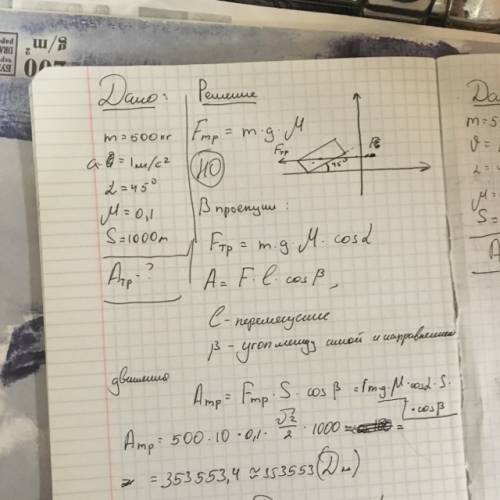 g/m²
200
Дано:
m=500кг
a=1м/с²
α=45°
μ=0,1
S=1000м
Aтр-?
Решение
Fтр = m·g·μ
НО
Fтр
45°
В проекции:
Fтр = m·g μ·cosα
A=F·l·cosβ,
l-перемещение
β-угол между силой и направлением
движения
Aтр= Fтр·S·cosβ = mg·μ·cosα·S·
·cosβ
Aтр=500·10·0,1·√2/2·1000=
=353553,4≈353553(Дж)
Да
m=5
S=
A